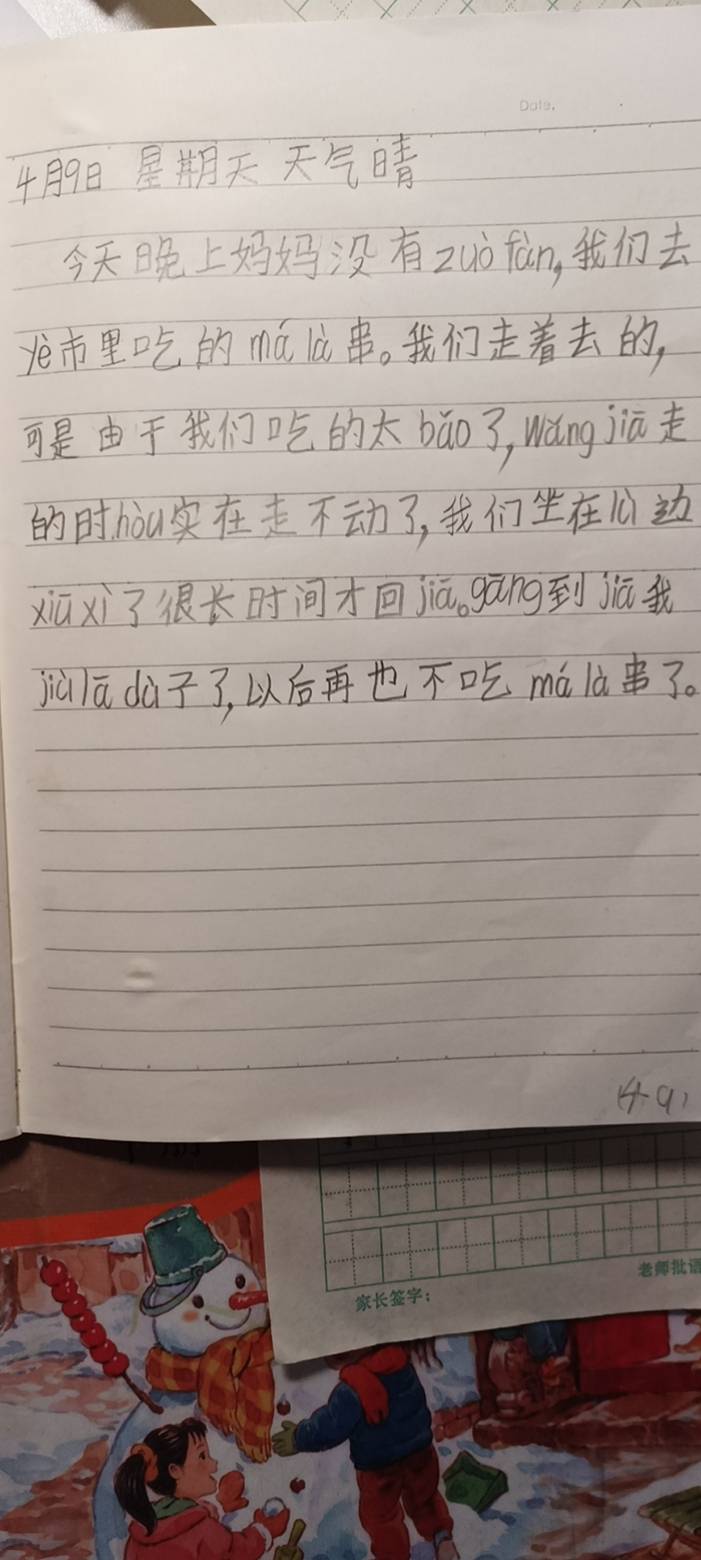 Date.
4月9日 星期天 天气晴
今天晚上妈妈没有zuò fàn,我们去
yè市里吃的má là串。我们走着去的,
可是由于我们吃的太bǎo了,wǎng jiā走
的时hòu实在走不动了,我们坐在lù边
xiū xì了很长时间才回jiā。gāng到jiā我
jiù lā dù子了,以后再也不吃má là串了。
老师批语
家长签字: